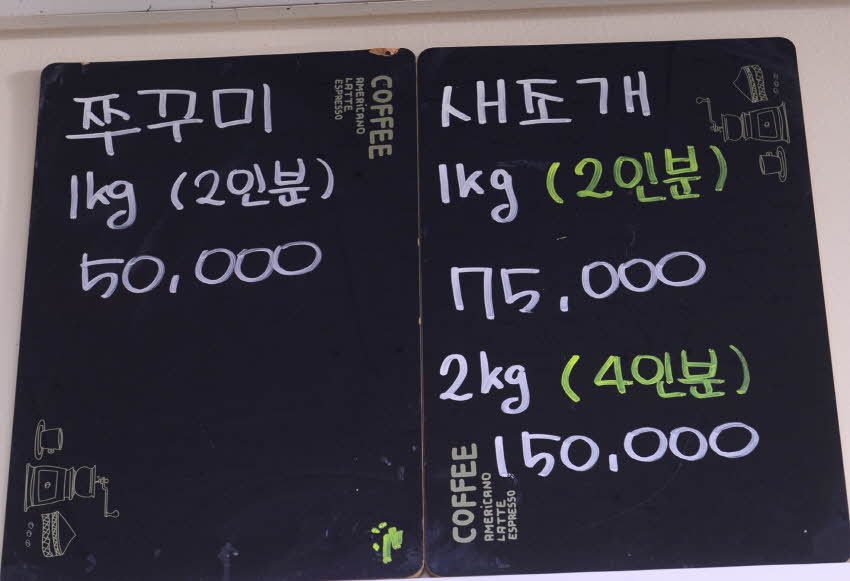 쭈꾸미
1kg (2인분)
50,000
COFFEE
AMERICANO
LATTE
ESPRESSO
새조개
1kg (2인분)
75,000
2kg (4인분)
150,000
COFFEE
AMERICANO
LATTE
ESPRESSO